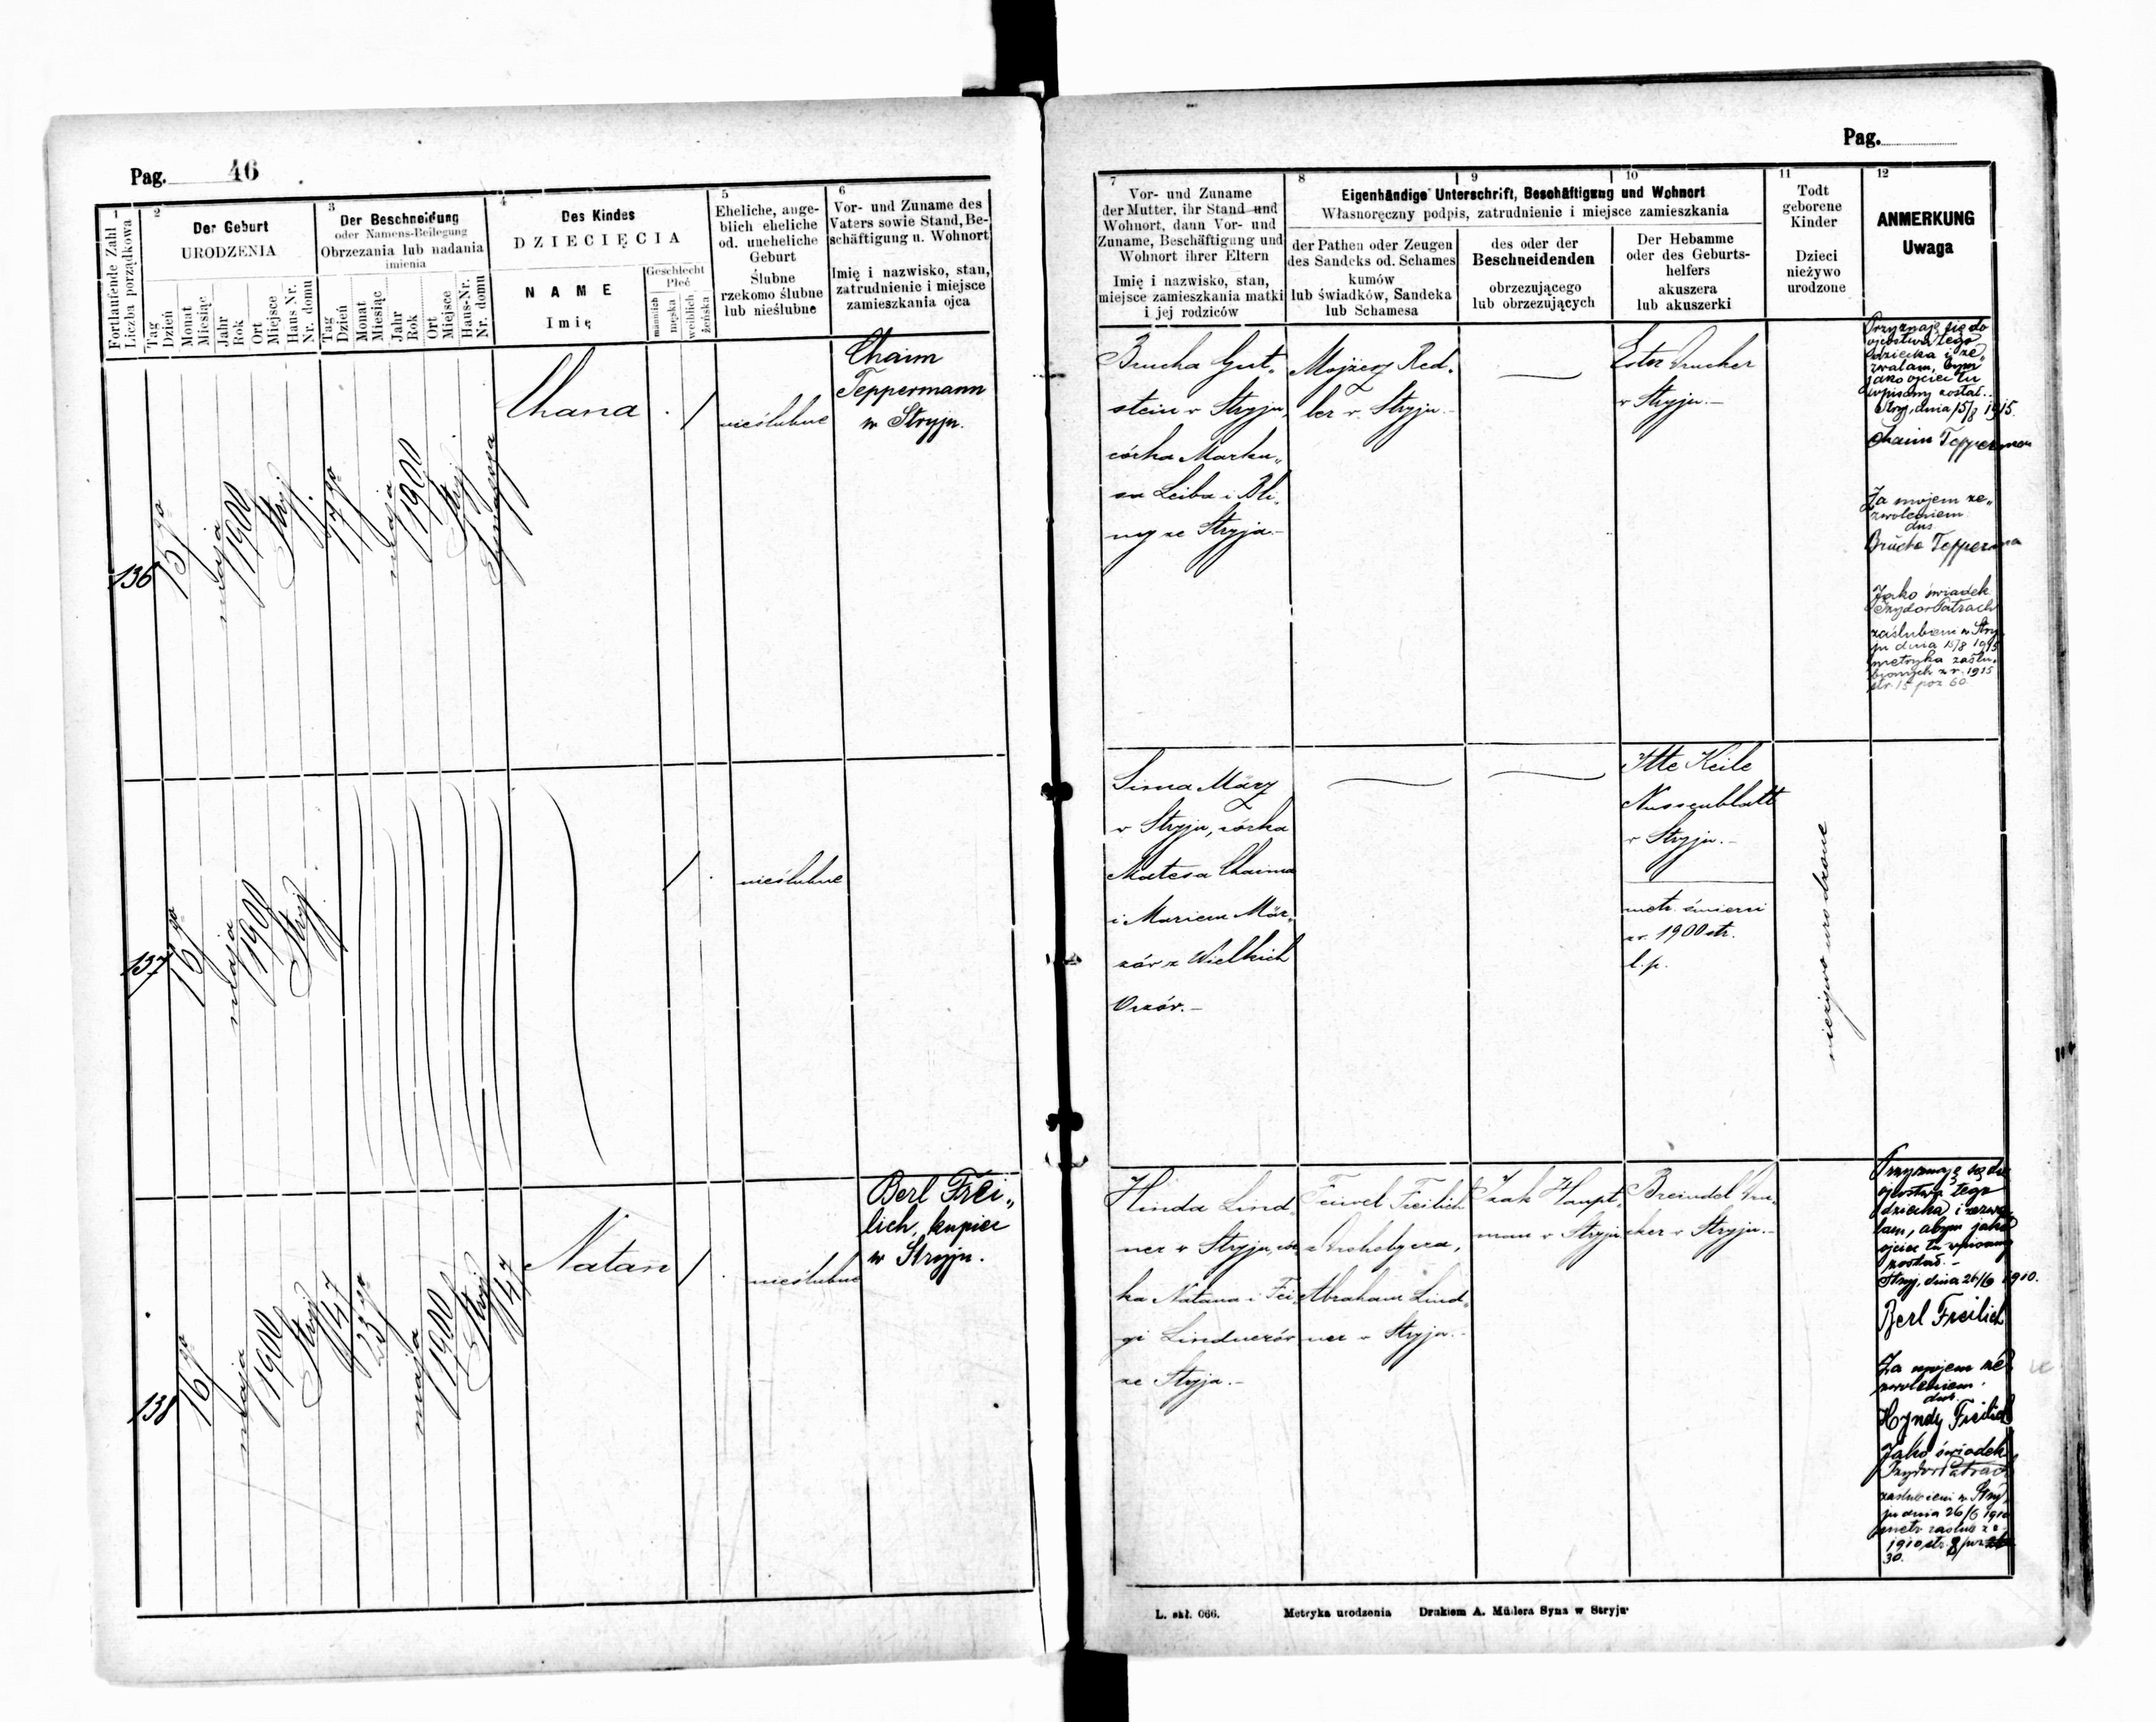 Pag. 46
1
Fortlaufende Zahl
Liczba porządkowa
2
Der Geburt
URODZENIA
Tag
Dzień
Monat
Miesiąc
Jahr
Rok
Ort
Miejsce
Haus Nr.
Nr. domu
3
Der Beschneidung
oder Namens-Beilegung
Obrzezania lub nadania
imienia
Tag
Dzień
Monat
Miesiąc
Jahr
Rok
Ort
Miejsce
Haus-Nr.
Nr. domu
4
Des Kindes
DZIECIĘCIA
NAME
Imię
Geschlecht
Płeć
männlich
męska
weiblich
żeńska
5
Eheliche, ange-
blich eheliche
od. uneheliche
Geburt
Ślubne
rzekomo ślubne
lub nieślubne
6
Vor- und Zuname des
Vaters sowie Stand, Be-
schäftigung u. Wohnort
Imię i nazwisko, stan,
zatrudnienie i miejsce
zamieszkania ojca
136
15go
maja
1900
Stryj
17go
maja
1900
Stryj
Synagoga
Chana
nieślubne
Chaim
Teppermann
w Stryju.
137
16go
maja
1900
Stryj
nieślubne
138
16go
maja
1900
Stryj
147
23go
maja
1900
Stryj
147
Natan
nieślubne
Berl Frei„
lich, kupiec
w Stryju.
Pag.
7
Vor- und Zuname
der Mutter, ihr Stand und
Wohnort, dann Vor- und
Zuname, Beschäftigung und
Wohnort ihrer Eltern
Imię i nazwisko, stan,
miejsce zamieszkania matki
i jej rodziców
8
9
10
Eigenhändige Unterschrift, Beschäftigung und Wohnort
Własnoręczny podpis, zatrudnienie i miejsce zamieszkania
der Pathen oder Zeugen
des Sandeks od. Schames
kumów
lub świadków, Sandeka
lub Schamesa
des oder der
Beschneidenden
obrzezującego
lub obrzezujących
Der Hebamme
oder des Geburts-
helfers
akuszera
lub akuszerki
11
Todt
geborene
Kinder
Dzieci
nieżywo
urodzone
12
ANMERKUNG
Uwaga
Brucha Gut„
stein w Stryju,
córka Marku„
sa Leiba i Bli„
my ze Stryja.–
Mojżesz Red„
ler w Stryju.–
Ester Drucker
w Stryju.–
Przyznaję się do
ojcostwa tego
dziecka i ze„
zwalam, bym
jako ojciec tu
wpisany został.
Stryj, dnia 15/8 1915
Chaim Tepperman
Za mojem ze„
zwoleniem
dns
Brucha Tepperman
Jako świadek
Izydor Patrach
zaślubieni w Stry
ju dnia 15/8 1915
metryka zaślu„
bionych z r. 1915
str. 15 poz 60
Sima März
w Stryju, córka
Matesa Chaima
i Mariem Mär„
zów z Wielkich
Oczów.–
Itte Keile
Nussenblatt
w Stryju.–
metr. śmierci
z r. 1900 str.
l.p.
nieżywo urodzone
Hinda Lind„
ner w Stryju, cór
ka Natana i Fei
gi Lindnerów
ze Stryja.–
Feiwel Freilich
z Drohobycza,
Abraham Lind„
ner w Stryju.–
Izak Haupt„
man w Stryju
Breindel Dru„
cker w Stryju.–
Przyznaję się do
ojcostwa tego
dziecka i zezwa
lam, abym jako
ojciec tu wpisany
został.–
Stryj, dnia 26/6 1910.
Berl Freilich
Za mojem ze
zwoleniem
Hyndy Freilich
Jako świadek
Izydor Patrach
zaślubieni w Stry
ju dnia 26/6 1910
metr. zaślub z r.
1910 str. 8 poz
30.
L. skł. 066. Metryka urodzenia Drukiem A. Müllera Syna w Stryju